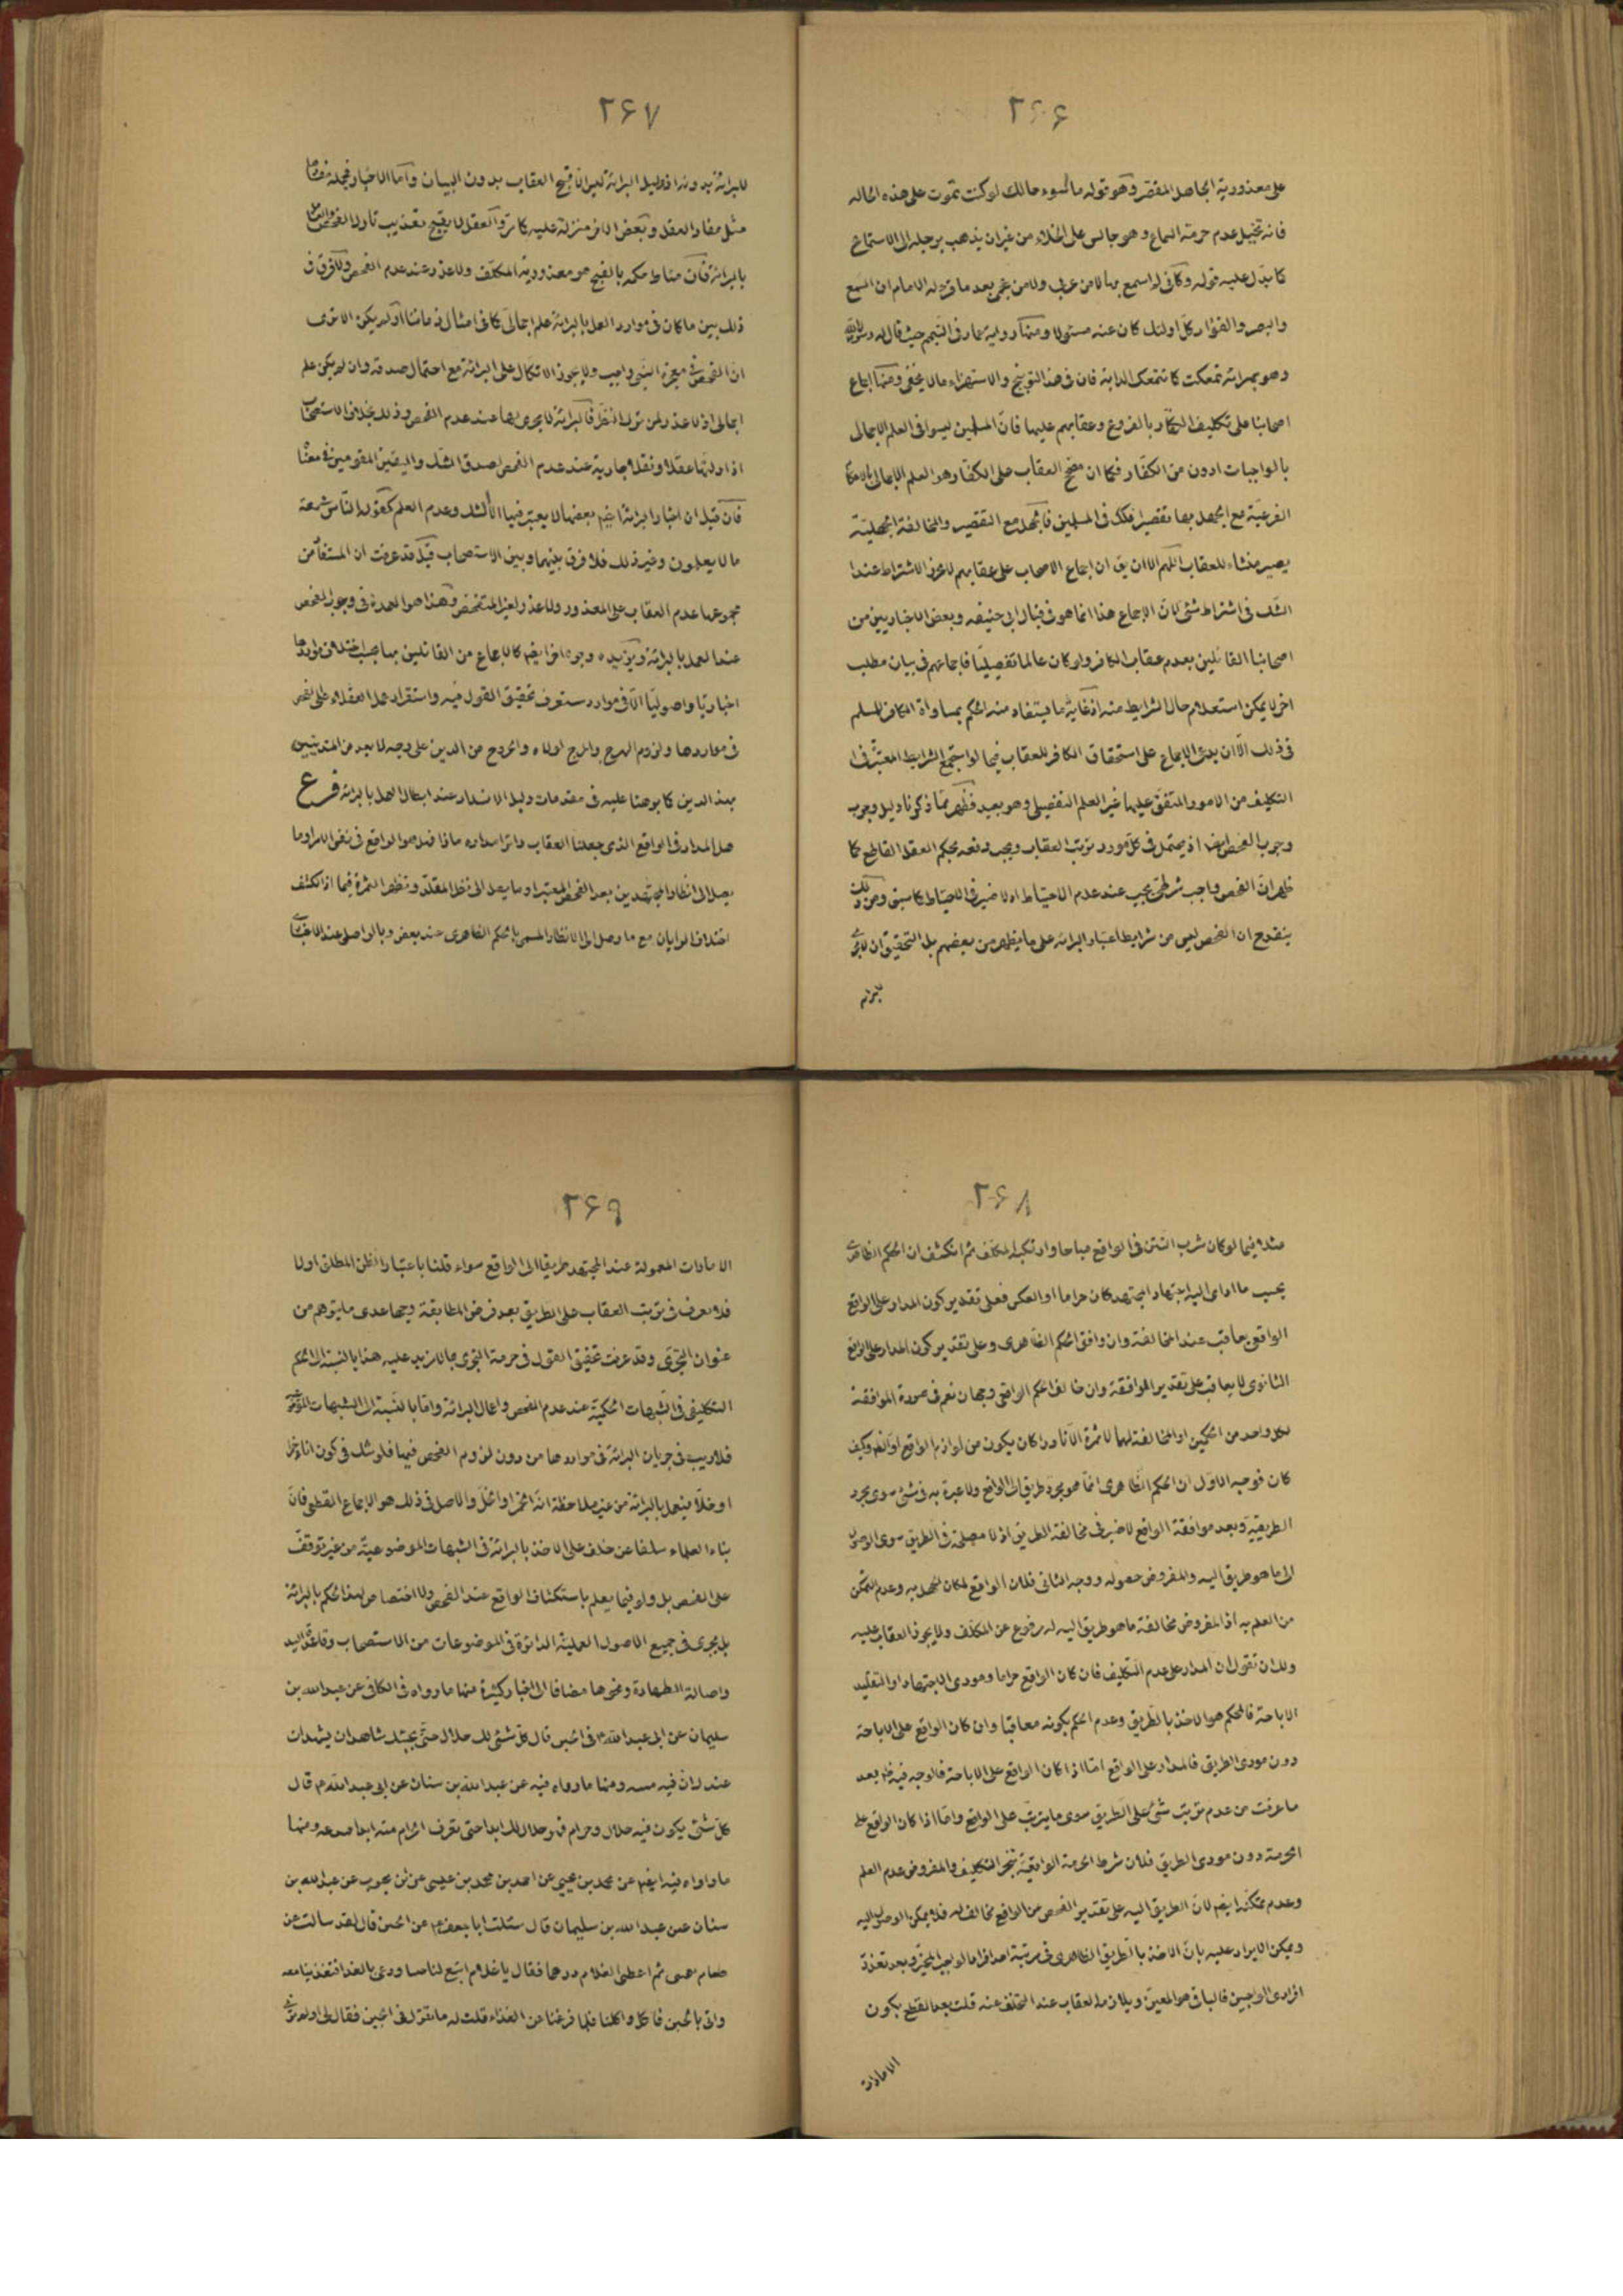 ٢۶۶
على معذورية الجاهل المقصّر وهو قوله ما اسوء حالك لو كنت تموت على هذه الحاله
فانه تخيل عدم حرمة السماع وهو جالس على الخلاء من غير ان يذهب برجله الى الاستماع
كما يدل عليه قوله وكانى لم اسمع بها لا من عربى ولا من عجمى بعد ما قرء له الامام ان السمع
والبصر والفؤاد كل اولئك كان عنه مسئولا ومنها رواية عمار فى التيمم حيث قال له رسول الله
وهو بمرائه تمعكت كما تتمعك الدابة فان فى هذا التوبيخ والاستهزاء ما لا يخفى ومنها اجماع
اصحابنا على تكليف الكفّار بالفروع وعقابهم عليها فانّ المسلمين ليسوا فى العلم الاجمالى
بالواجبات ادون من الكفّار فكما ان مصحّح العقاب على الكفّار هو العلم الاجمالى بالاحكام
الفرعيّة مع الجهل بها تقصيرا فكك فى المسلمين فالجهل مع التقصير والمخالفة الجهليّة
يصير منشاء للعقاب اللهم الا ان يق ان اجماع الاصحاب على عقابهم لا عن الاشتراط عندا
الشك فى اشتراط شئ لانّ الاجماع هذا انما هو فى قبال ابى حنيفه وبعض الاخباريين من
اصحابنا القائلين بعدم عقاب الكافر ولو كان عالما تفصيليّا فاجماعهم فى بيان مطلب
اخر لا يمكن استعلام حال الشرايط منه اذ غاية ما يستفاد منه الحكم بمساواة الكافر للمسلم
فى ذلك الّا ان يدعى الاجماع على استحقاق الكافر للعقاب فيما لو استجمع الشرايط المعتبرة فى
التكليف من الامور المتفق عليها غير العلم التفصيلى وهو بعيد فظهر ممّا ذكرنا دليل وجوب
وجوب الفحص ايضا اذ يحتمل فى كل مورد ترتب العقاب ويجب دفعه بحكم العقل القاطع كما
ظهر انّ الفحص واجب شرطى يجب عند عدم الاحتياط اذ لا ضير فى الاحتياط كما سبق ومن ذلك
ينقدح ان الفحص ليس من شرايط اعتبار البرائة على ما يظهر من بعضهم بل التحقيق ان لا مجرى
للبرائه
٢۶٧
للبرائة بدونه اذ دليل البرائة ليس الّا قبح العقاب بدون البيان وامّا الاخبار فجملة منها
مثل مفاد العقل وبعض الاخر منزلة عليه كما مرّ والعقل لا يقبح تعذيب تارك الفحص والعامل
بالبرائة فانّ مناط حكمه بالقبح هو معذورية المكلّف ولا عذر عند عدم الفحص ولا فرق فى
ذلك بين ما كان فى موارد العمل بالبرائة علم اجمالىّ كما فى امثال زماننا او لم يكن الا ترى
ان الفحص فى معجزة النبى واجب ولا يجوز الاتكال على البرائة مع احتمال صدقه وان لم يكن علم
اجمالى اذ لا عذر لمن ترك النظر فالبرائة لا يجرى بها عند عدم الفحص وذلك بخلاف الاستصحاب
اذ ادلتها عقلا ونقلا جارية عند عدم الفحص لصدق الشك واليقين المقومين فى معنا
فان قيل ان اخبار البرائة ايضا بعضها لا يعتبر فيها الّا الشك وعدم العلم كقوله النّاس فى سعة
ما لا يعلمون وغير ذلك فلا فرق بينهما وبين الاستصحاب قيل قد عرفت ان المستفاد من
مجموعها عدم العقاب على المعذور ولا عذر لغير المتفحص وهذا هو العمدة فى وجوب الفحص
عند العمل بالبرائة ويؤيده وجوه اخر ايضا كالاجماع من القائلين بها بحسب اختلاف مواردها
اخباريّا واصوليّا الّا فى موارد ستعرف تحقيق القول فيه واستقرار عمل العقلاء على الفحص
فى مواردها ولزوم الهرج والمرج لولاه والخروج من الدين على وجه لا يعد من المتدينين
بهذ الدين كما نوهنا عليه فى مقدمات دليل الانسداد عند ابطال العمل بالبرائه فرع
هل المدار فى الواقع الذى جعلنا العقاب دائرا مداره ماذا فهل هو الواقع فى نفس الامر او ما
يصل الى انظار المجتهدين بعد الفحص المعتبر او ما يصل الى نظر المقلّد وتظهر الثمرة فيما اذا انكشف
اختلاف الرايان مع ما وصل اليه الانظار المسمى بالحكم الظاهرى عند بعض وبالواصلى عند الاخر
٢۶٨
مثلا فيما لو كان شرب التتن فى الواقع مباحا وارتكبه المكلّف ثم انكشف ان الحكم الظاهرى
بحسب ما ادى اليه اجتهاد المجتهد كان حراما او العكس فعلى تقدير كون المدار على الواقع
الواقعى يعاقب عند المخالفة وان وافق الحكم الظاهرى وعلى تقدير كون المدار على الواقع
الثانوى لا يعاقب على تقدير الموافقة وان خالف الحكم الواقعى وجهان نعم فى صورة الموافقة
لكل واحد من الحكمين او المخالفة لهما لا ثمرة الّا نادرا كان يكون من لوازم الواقع او الظّم وكيف
كان فوجه الاول ان الحكم الظاهرى انّما هو مجرد طريق الى الواقع ولا عبرة به فى شئ سوى مجرد
الطريقية وبعد موافقة الواقع لا ضير فى مخالفة الطريق اذ لا مصلحة فى الطريق سوى الوصول
الى ما هو طريق اليه والمفروض حصوله ووجه الثانى فلان الواقع لمكان الجهل به وعدم التمكن
من العلم به اذ المفروض مخالفة ما هو طريق اليه له مرفوع عن المكلف ولا يجوز العقاب عليه
ولك ان تقول ان المدار على عدم التكليف فان كان الواقع حراما ومودى الاجتهاد او التقليد
الاباحة فالحكم هو الاخذ بالطريق وعدم الحكم بكونه معاقبا وان كان الواقع على الاباحة
دون مودى الطريق فالمدار على الواقع امّا اذا كان الواقع على الاباحة فالوجه فيه ظم بعد
ما عرفت من عدم ترتب شئ على الطريق سوى ما يترتب على الواقع وامّا اذا كان الواقع على
الحرمة دون مودى الطريق فلان شرط الحرمة الواقعيّة تنجز التكليف والمفروض عدم العلم
وعدم تمكنه ايضا لانّ الطريق اليه على تقدير الفحص من الواقع مخالف له فلا يمكن الوصول اليه
ويمكن الايراد عليه بانّ الاخذ بالطريق الظاهرى فى مرتبة احد افراد الواجب المخيّر وبعد تعذر
افرادى الواجبين فالباقى هو المعين ويلازمه العقاب عند التخلف عنه قلت بعد القطع بكون
الامارات
٢۶٩
الامارات المعمولة عند المجتهد طريقا الى الواقع سواء قلنا باعتبار الظن المطلق او لا
فلا نعرف فى ترتب العقاب على الطريق بعد فرض المطابقة وجها عدى ما يتوهم من
عنوان التجرّى وقد عرفت تحقيق القول فى حرمة التجرى بما لا مزيد عليه هذا بالنسبة الى الحكم
التكليفى فى الشبهات الحكميّة عند عدم الفحص واعمال البرائة وامّا بالنسبة الى الشبهات الموضوعية
فلا ريب فى جريان البرائة فى مواردها من دون لزوم الفحص فيها فلو شك فى كون اناء خمرا
او خلّا فيعمل بالبرائة من غير ملاحظة انّه الخمر او الخلّ والاصل فى ذلك هو الاجماع القطعى فانّ
بناء العلماء سلفا عن خلف على الاخذ بالبرائة فى الشبهات الموضوعيّة من غير توقف
على الفحص بل ولو فيما يعلم باستكشاف الواقع عند الفحص ولا اختصاص لهذا الحكم بالبرائة
بل يجرى فى جميع الاصول العملية الدائرة فى الموضوعات من الاستصحاب وقاعدة اليد
واصالة الطهارة ونحوها مضافا الى اخبار كثيرة منها ما رواه فى الكافى عن عبد الله بن
سليمان عن ابى عبد الله ع فى الجبن قال كل شئ لك حلال حتى يجيئك شاهدان يشهدان
عندك انّ فيه ميته ومنها ما رواه فيه عن عبد الله بن سنان عن ابى عبد الله ع قال
كل شئ يكون فيه حلال وحرام فهو حلال لك ابدا حتى تعرف الحرام منه ابدا فتدعه ومنها
ما رواه فيه ايضا عن محمد بن يحيى عن احمد بن محمد بن عيسى عن ابن محبوب عن عبد الله بن
سنان عن عبد الله بن سليمان قال سئلت ابا جعفر ع عن الجبن قال لقد سالت عن
طعام يعجبنى ثم اعطى الغلام درهما فقال يا غلام ابتع لنا جبنا ودعى بالغدا فتغذينا معه
واتى بالجبن فاكل واكلنا فلما فرغنا من الغذاء قلت له ما تقول فى الجبن فقال لى اولم ترنى